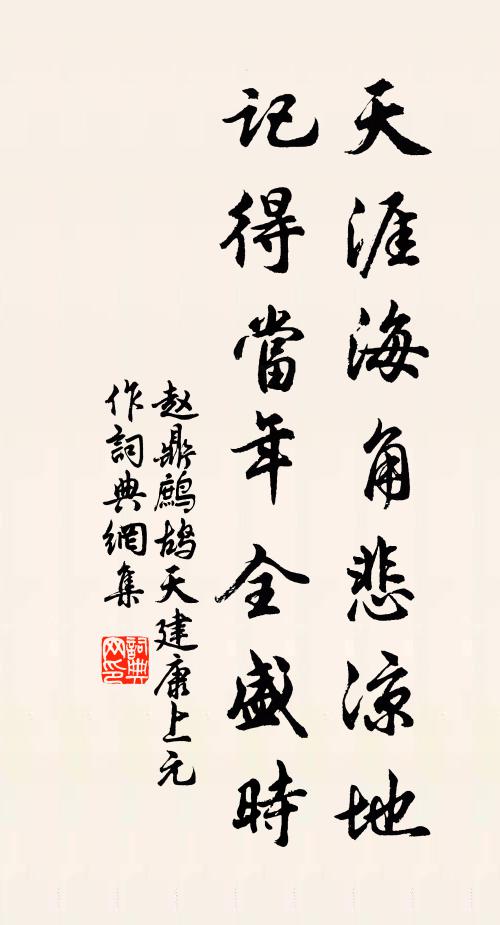 天涯海角悲涼地
記得當年全盛時
赵鼎鷓鴣天建康上元
作詞典網集
詞典
网印